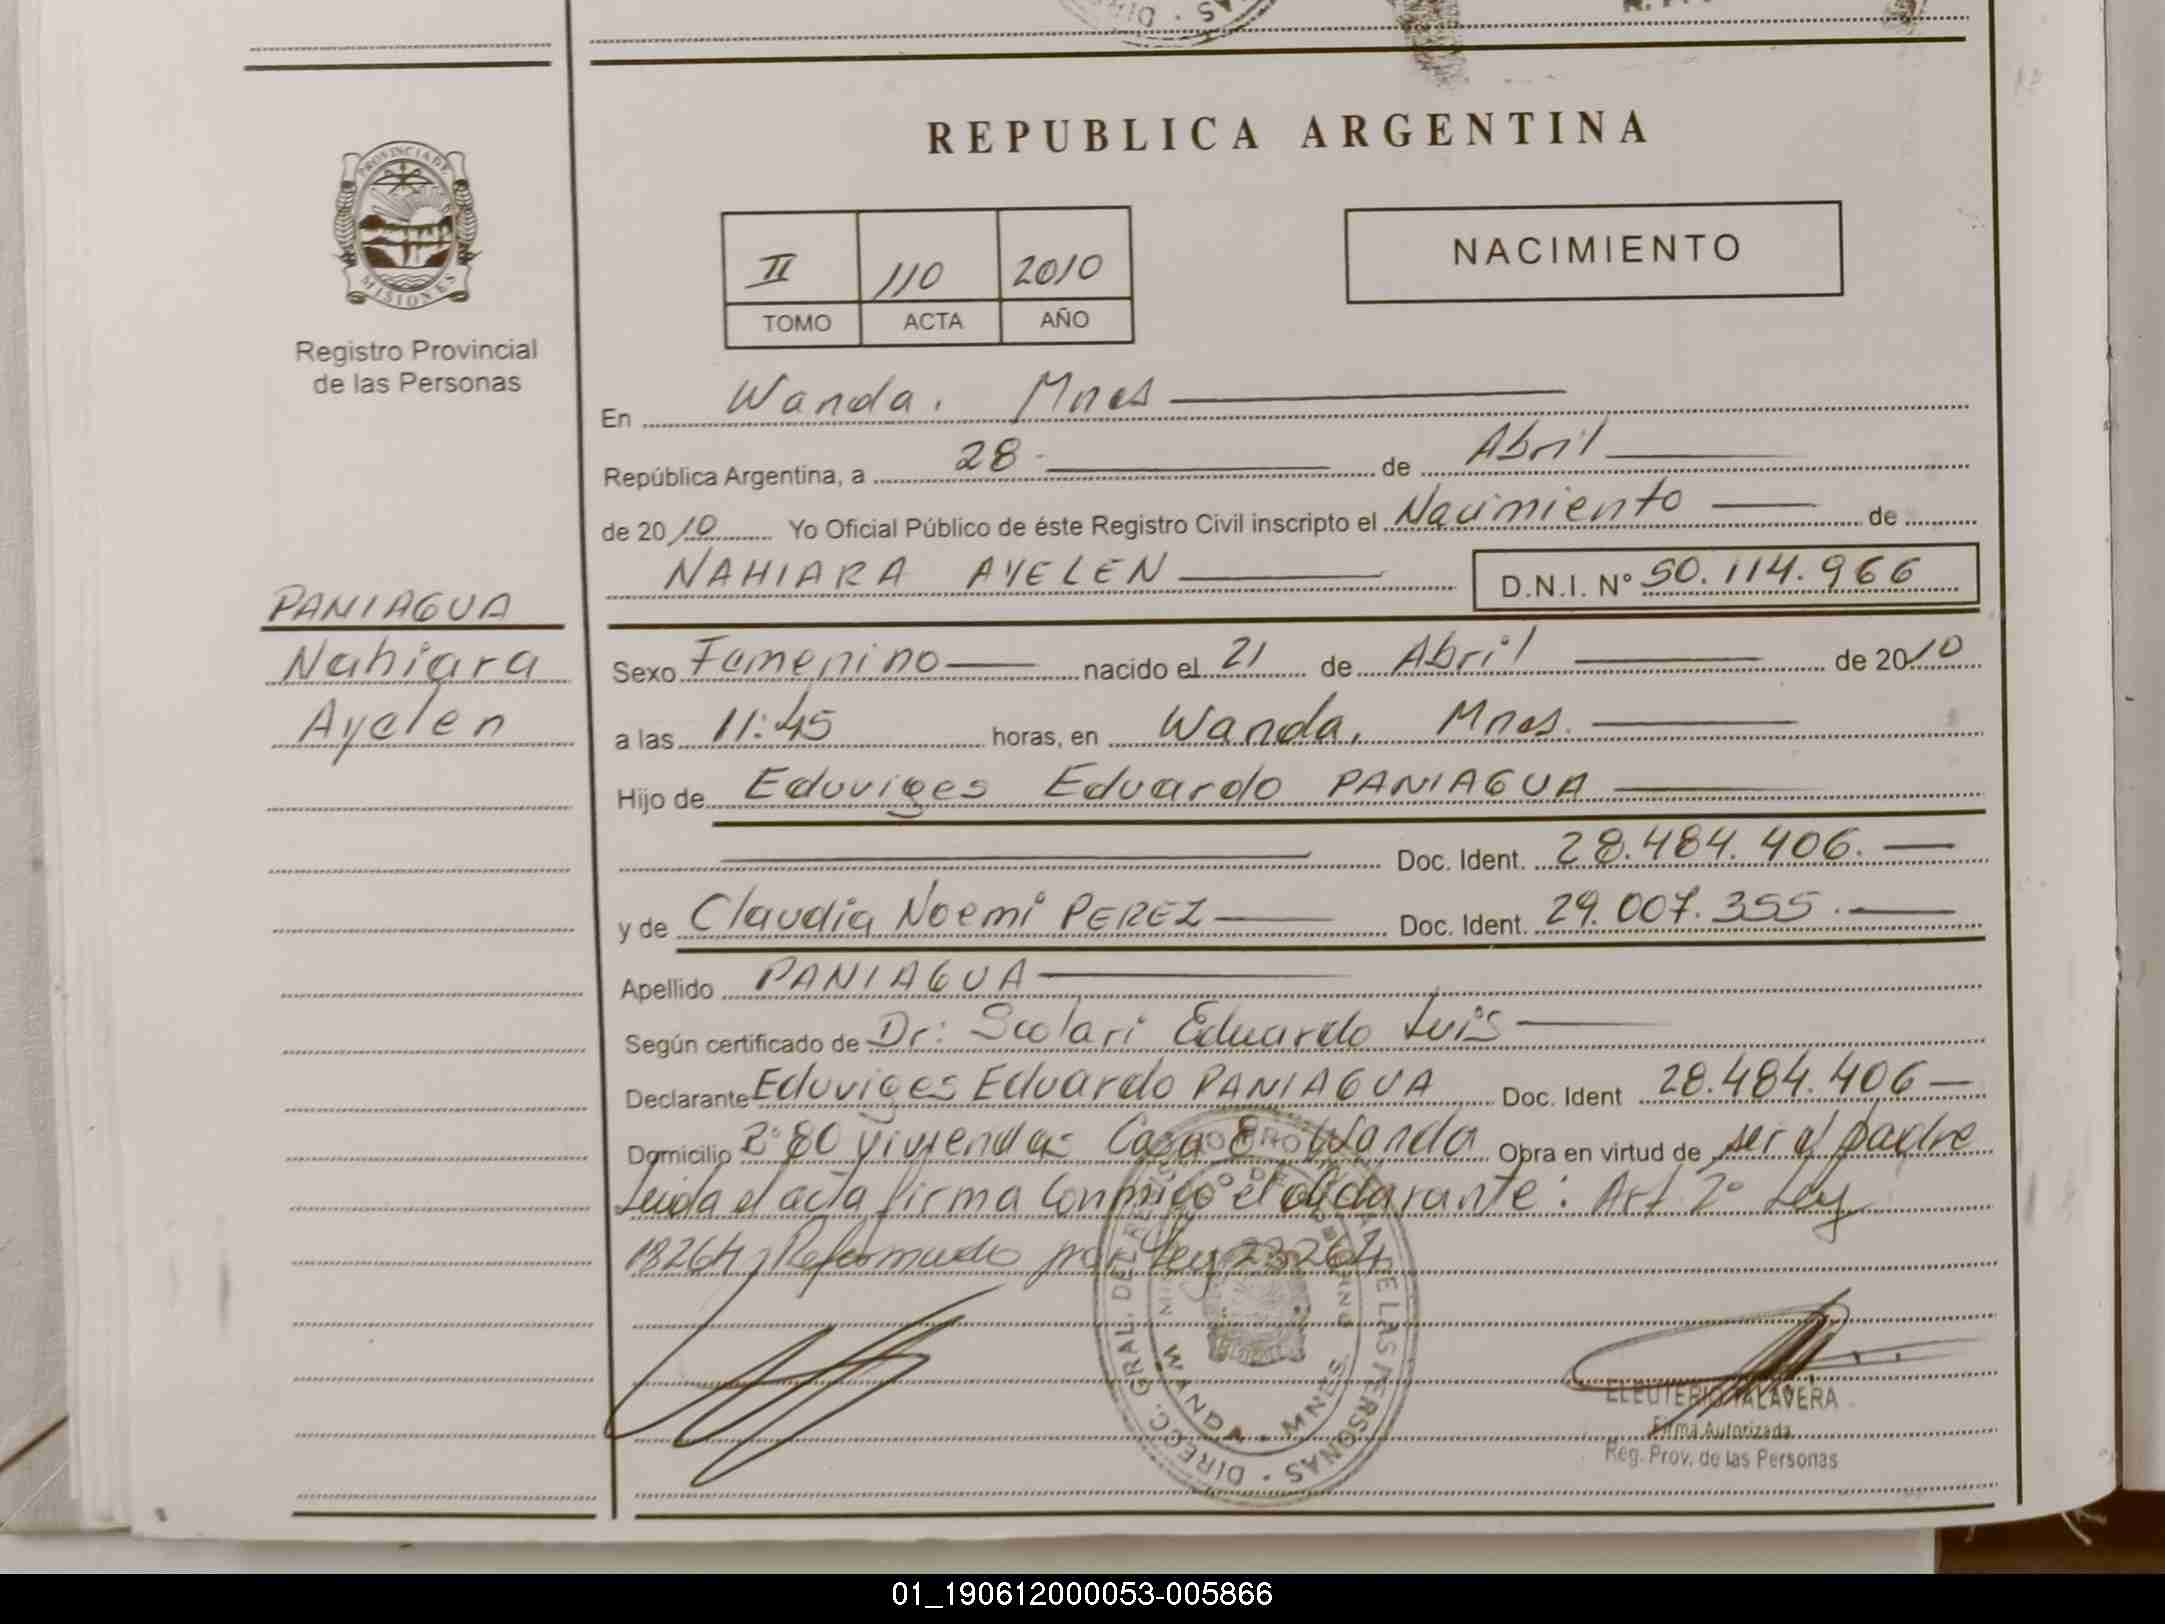 REPUBLICA ARGENTINA
PROVINCIA DE
MISIONES
Registro Provincial
de las Personas
II 110 2010
TOMO ACTA AÑO
NACIMIENTO
En Wanda. Mnes
República Argentina, a 28 de Abril
de 2010 Yo Oficial Público de éste Registro Civil inscripto el Nacimiento de
NAHIARA AYELEN D.N.I. Nº 50.114.966
PANIAGUA
Nahiara
Ayelen
Sexo Femenino nacido el 21 de Abril de 2010
a las 11:45 horas, en Wanda, Mnes.
Hijo de Eduviges Eduardo PANIAGUA
Doc. Ident. 28.484.406.
y de Claudia Noemi PEREZ Doc. Ident. 29.007.355.
Apellido PANIAGUA
Según certificado de Dr: Scolari Eduardo Luis
Declarante Eduviges Eduardo PANIAGUA Doc. Ident 28.484.406
Domicilio 2º 80 viviendas Casa 8 Wanda Obra en virtud de ser el padre
Leida el acta firma conmigo el declarante: Art 2º Ley
18264, Reformado por Ley 23264
DIRECC. GRAL. DEL DE LAS PERSONAS
WANDA • MNES.
ELEUTERIO TALAVERA
Firma Autorizada
Reg. Prov. de las Personas
01_190612000053-005866